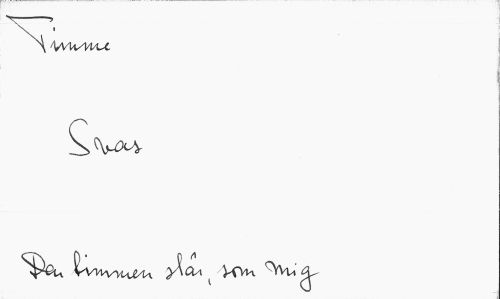 Timme
Svas
Den timmen slår, som mig